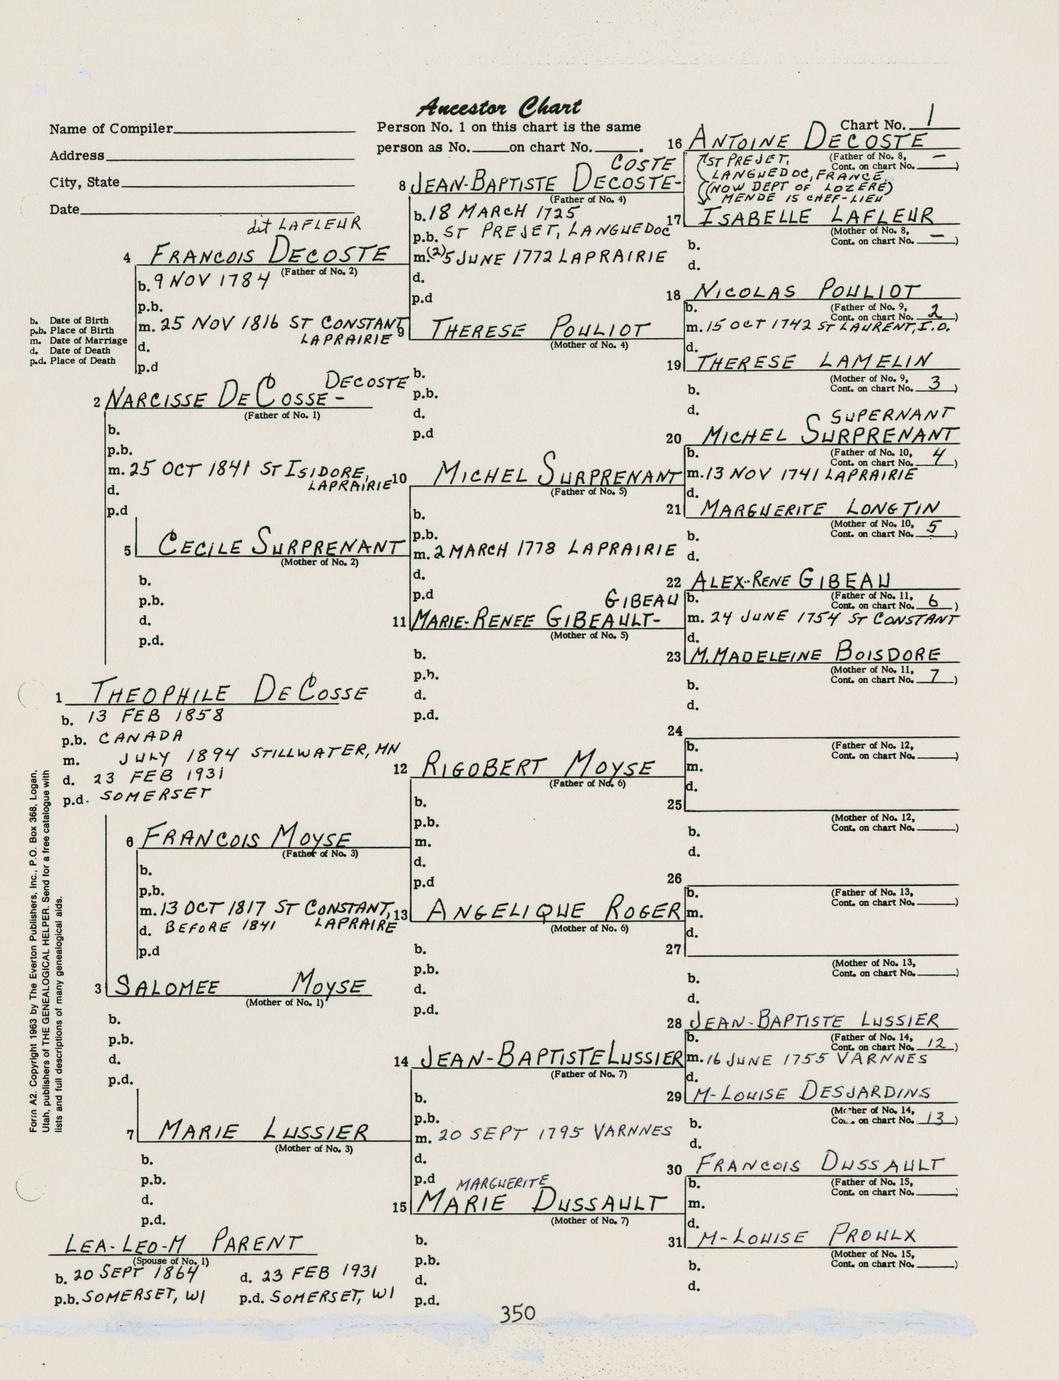 Ancestor Chart
Name of Compiler
Address
City, State
Date
Person No. 1 on this chart is the same
person as No. on chart No. .
Chart No. 1
b. Date of Birth
p.b. Place of Birth
m. Date of Marriage
d. Date of Death
p.d. Place of Death
1 THEOPHILE DECOSSE
b. 13 FEB 1858
p.b. CANADA
m. JULY 1894 STILLWATER, MN
d. 23 FEB 1931
p.d. SOMERSET
DECOSTE
2 NARCISSE DECOSSE -
(Father of No. 1)
b.
p.b.
m. 25 OCT 1841 ST ISIDORE,
LAPRAIRIE
d.
p.d
3 SALOMEE MOYSE
(Mother of No. 1)
b.
p.b.
d.
p.d.
dit LAFLEUR
4 FRANCOIS DECOSTE
(Father of No. 2)
b. 9 NOV 1784
p.b.
m. 25 NOV 1816 ST CONSTANT,
LAPRAIRIE
d.
p.d
5 CECILE SURPRENANT
(Mother of No. 2)
b.
p.b.
d.
p.d.
6 FRANCOIS MOYSE
(Father of No. 3)
b.
p.b.
m. 13 OCT 1817 ST CONSTANT,
LAPRAIRE
d. BEFORE 1841
p.d
7 MARIE LUSSIER
(Mother of No. 3)
b.
p.b.
d.
p.d.
COSTE
8 JEAN-BAPTISTE DECOSTE-
(Father of No. 4)
b. 18 MARCH 1725
p.b. ST PREJET, LANGUEDOC
m. (2) 5 JUNE 1772 LAPRAIRIE
d.
p.d
9 THERESE POULIOT
(Mother of No. 4)
b.
p.b.
d.
p.d
10 MICHEL SURPRENANT
(Father of No. 5)
b.
p.b.
m. 2 MARCH 1778 LAPRAIRIE
d.
p.d
GIBEAU
11 MARIE-RENEE GIBEAULT-
(Mother of No. 5)
b.
p.b.
d.
p.d.
12 RIGOBERT MOYSE
(Father of No. 6)
b.
p.b.
m.
d.
p.d
13 ANGELIQUE ROGER
(Mother of No. 6)
b.
p.b.
d.
p.d.
14 JEAN-BAPTISTE LUSSIER
(Father of No. 7)
b.
p.b.
m. 20 SEPT 1795 VARNNES
d.
p.d
MARGUERITE
15 MARIE DUSSAULT
(Mother of No. 7)
b.
p.b.
d.
p.d.
16 ANTOINE DECOSTE
(Father of No. 8,
Cont. on chart No. — )
ST PREJET,
LANGUEDOC, FRANCE
(NOW DEPT OF LOZERE)
MENDE IS CHEF-LIEU
17 ISABELLE LAFLEUR
(Mother of No. 8,
Cont. on chart No. — )
b.
d.
18 NICOLAS POULIOT
(Father of No. 9,
Cont. on chart No. 2 )
b.
m. 15 OCT 1742 ST LAURENT, I.O.
d.
19 THERESE LAMELIN
(Mother of No. 9,
Cont. on chart No. 3 )
b.
d.
SUPERNANT
20 MICHEL SURPRENANT
(Father of No. 10,
Cont. on chart No. 4 )
b.
m. 13 NOV 1741 LAPRAIRIE
d.
21 MARGUERITE LONGTIN
(Mother of No. 10,
Cont. on chart No. 5 )
b.
d.
22 ALEX-RENE GIBEAU
(Father of No. 11,
Cont. on chart No. 6 )
b.
m. 24 JUNE 1754 ST CONSTANT
d.
23 M.MADELEINE BOISDORE
(Mother of No. 11,
Cont. on chart No. 7 )
b.
d.
24
(Father of No. 12,
Cont. on chart No. )
b.
m.
d.
25
(Mother of No. 12,
Cont. on chart No. )
b.
d.
26
(Father of No. 13,
Cont. on chart No. )
b.
m.
d.
27
(Mother of No. 13,
Cont. on chart No. )
b.
d.
28 JEAN-BAPTISTE LUSSIER
(Father of No. 14,
Cont. on chart No. 12 )
b.
m. 16 JUNE 1755 VARNNES
d.
29 M-LOUISE DESJARDINS
(Mother of No. 14,
Cont. on chart No. 13 )
b.
d.
30 FRANCOIS DUSSAULT
(Father of No. 15,
Cont. on chart No. )
b.
m.
d.
31 M-LOUISE PROULX
(Mother of No. 15,
Cont. on chart No. )
b.
d.
LEA-LEO-M PARENT
(Spouse of No. 1)
b. 20 SEPT 1864 d. 23 FEB 1931
p.b. SOMERSET, WI p.d. SOMERSET, WI
350
Form A2. Copyright 1963 by The Everton Publishers, Inc., P.O. Box 368, Logan,
Utah, publishers of THE GENEALOGICAL HELPER. Send for a free catalogue with
lists and full descriptions of many genealogical aids.